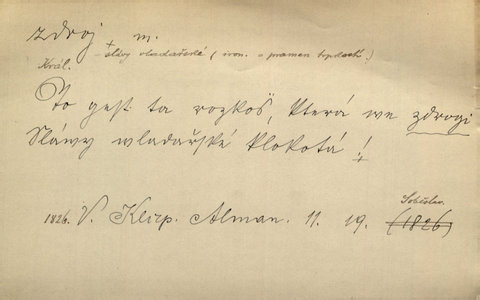 zdroj m.
+ slávy vladařské (iron. o pramen
Král.
To gest ta rozkoš, která we zdrogi
Slávy wladařské klokotá!
Soběslav.
1826. V. Klicp. Alman. 11. 19. (1826)